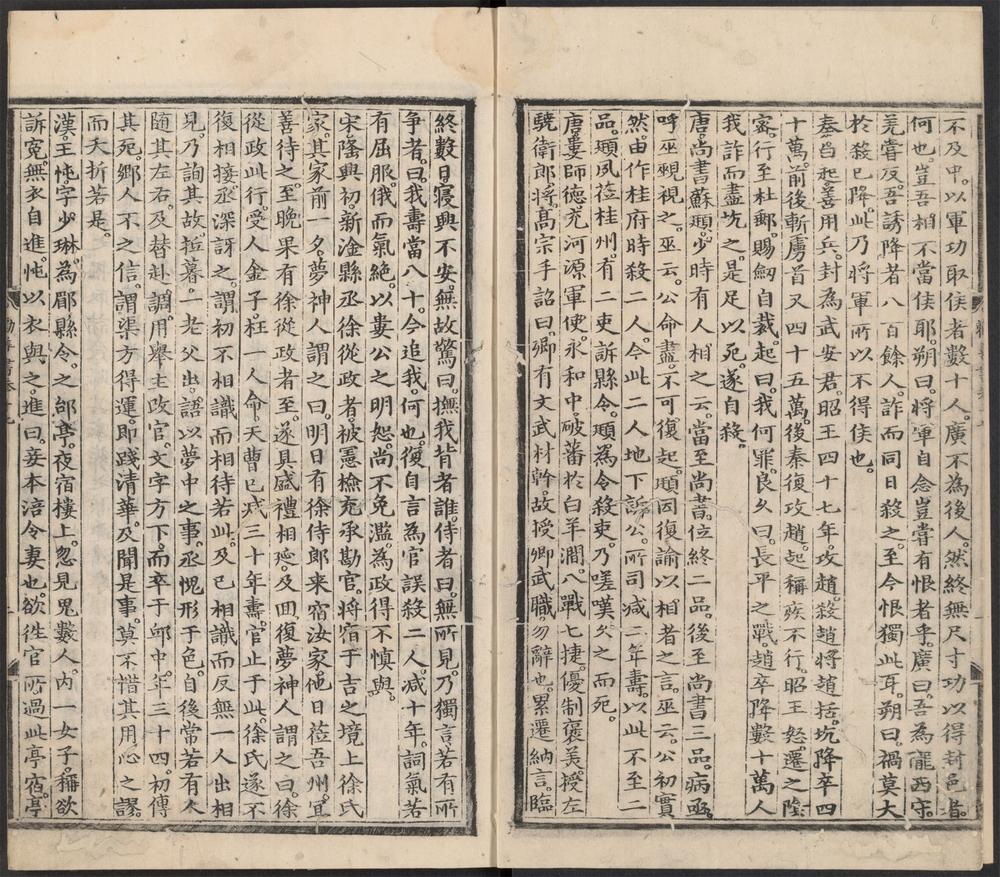 不及中以軍功取侯者數十人。廣不為後人。然終無尺寸功以得封邑者。
何也。豈吾相不當侯耶。朔曰。將軍自念豈嘗有恨者乎。廣曰。吾為隴西守。
羌嘗反。吾誘降者八百餘人。詐而同日殺之。至今恨獨此耳。朔曰。禍莫大
於殺已降。此乃將軍所以不得侯也。
秦白起。喜用兵。封為武安君。昭王四十七年。攻趙。殺趙將趙括。坑降卒四
十萬。前後斬虜首又四十五萬。後秦復攻趙。起稱疾不行。昭王怒。遷之陰
密。行至杜郵。賜劒自裁。起曰。我何罪。良久曰。長平之戰。趙卒降數十萬人
我詐而盡坑之。是足以死。遂自殺。
唐。尚書蘇頲。少時有人相之云。當至尚書。位終二品。後至尚書三品。病亟。
呼巫覡視之。巫云。公命盡。不可復起。頲因復諭以相者之言。巫云。公初實
然。由作桂府時殺二人。今此二人地下訴公。所司减二年壽。以此不至二
品。頲夙莅桂州。有二吏訴縣令。頲為令殺吏。乃嗟嘆久之而死。
唐。婁師德充河源軍使。永和中。破蕃於白羊澗。八戰七捷。優制褒美。授左
驍衛郎將。高宗手詔曰。卿有文武材幹。故授卿武職。勿辭也。累遷納言。臨
終數日。寢興不安。無故驚曰。撫我背者誰。侍者曰。無所見。乃獨言若有所
争者。曰。我壽當八十。今追我何也。復自言為官誤殺二人。减十年。詞氣若
有屈服。俄而氣絶。以婁公之明恕。尚不免濫。為政得不慎與。
宋。隆興初。新淦縣丞徐從政者。被憲檢充承勘官。將宿于吉之境上徐氏
家。其家前一夕。夢神人謂之曰。明日有徐侍郎来宿汝家。他日莅吾州。宜
善待之。至晚果有徐從政者至。遂具盛禮相延。及回。復夢神人謂之曰。徐
從政此行。受人金子。枉一人命。天曹已减三十年壽。官止于此。徐氏遂不
復相接。丞深訝之。謂初不相識而相待若此。及已相識而反無一人出相
見。乃詢其故。抵暮。一老父出。語以夢中之事。丞愧形于色。自後常若有人
随其左右。及替赴調。用舉主改官。文字方下。而卒于邸中。年三十四。初傳
其死。鄉人不之信。謂渠方得運。即踐清華。及聞是事。莫不惜其用心之謬。
而夭折若是。
漢。王忳字少琳。為郿縣令。之邰亭。夜宿樓上。忽見鬼數人。内一女子。稱欲
訴寃。無衣自進。忳以衣與之。進曰。妾本涪令妻也。欲徃官所。過此亭宿。亭